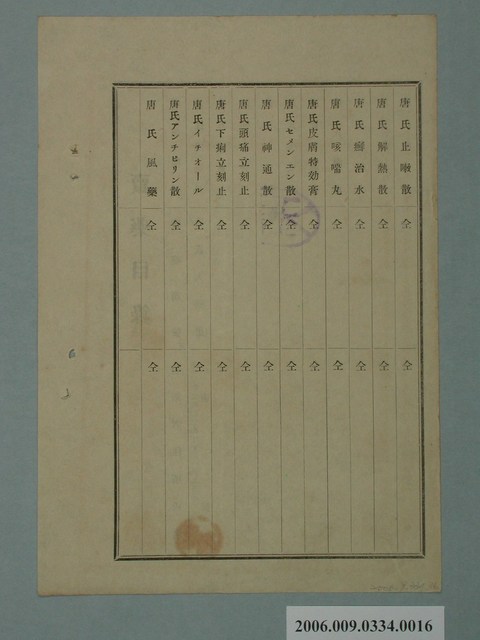 唐氏止嗽散 仝 仝
唐氏解熱散 仝 仝
唐氏癬治水 仝 仝
唐氏咳喘丸 仝 仝
唐氏皮膚特効膏 仝 仝
唐氏セメンエン散 仝 仝
唐氏神通散 仝 仝
唐氏頭痛立刻止 仝 仝
唐氏下痢立刻止 仝 仝
唐氏イチオール 仝 仝
唐氏アンチヒリン散 仝 仝
唐氏風藥 仝 仝
2006.009.0334.0016